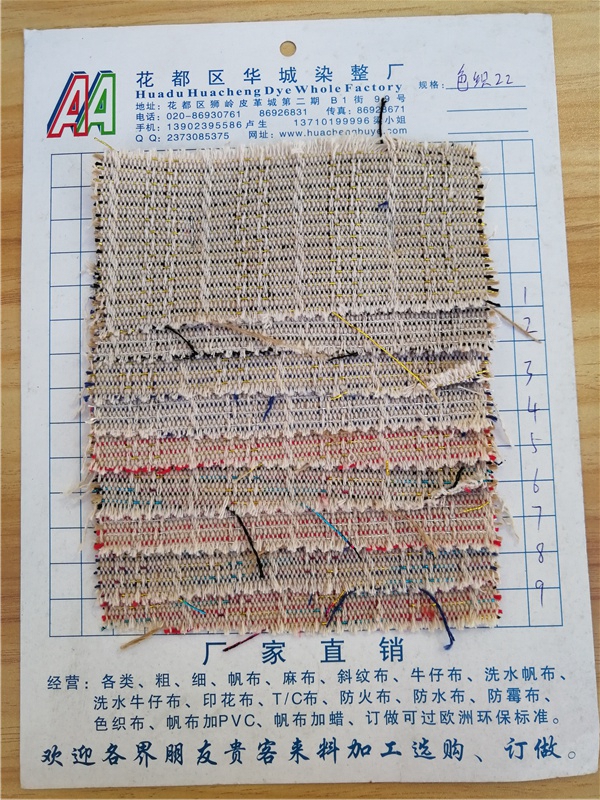 AA
花都区华城染整厂
Huadu Huacheng Dye Whole Factory
规格: 色织22
地址: 花都区狮岭皮革城第二期 B1街 9 号
电话: 020-86930761 86926831 传真: 86926671
手机: 13902395586 卢生 13710199996 梁小姐
Q Q: 2373085375 网址: www.huachengbuye.com
1
2
3
4
5
6
7
8
9
厂家直销
经营: 各类、粗、细、帆布、麻布、斜纹布、牛仔布、洗水帆布、
洗水牛仔布、印花布、T/C布、防火布、防水布、防霉布、
色织布、帆布加PVC、帆布加蜡、订做可过欧洲环保标准。
欢迎各界朋友贵客来料加工选购、订做。